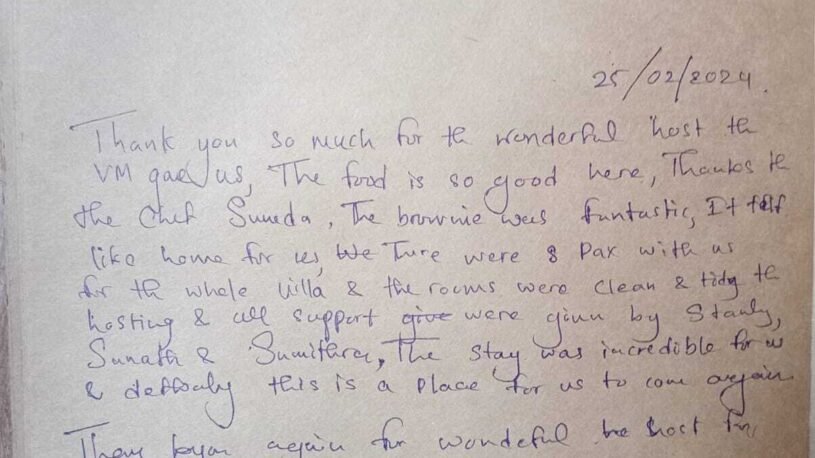 25/02/2024.
Thank you so much for th wonderful host th
VM gave us, The food is so good here, Thanks to
the Chef Suneda, The brownie was funtastic, It felt
like home for us, We There were 8 Pax with us
for th whole villa & the rooms were clean & tidy th
hosting & all support give were givn by Stanly,
Sunath & Sumithra, The stay was incredible for us
& this is a place for us to com again
again for wondeful host